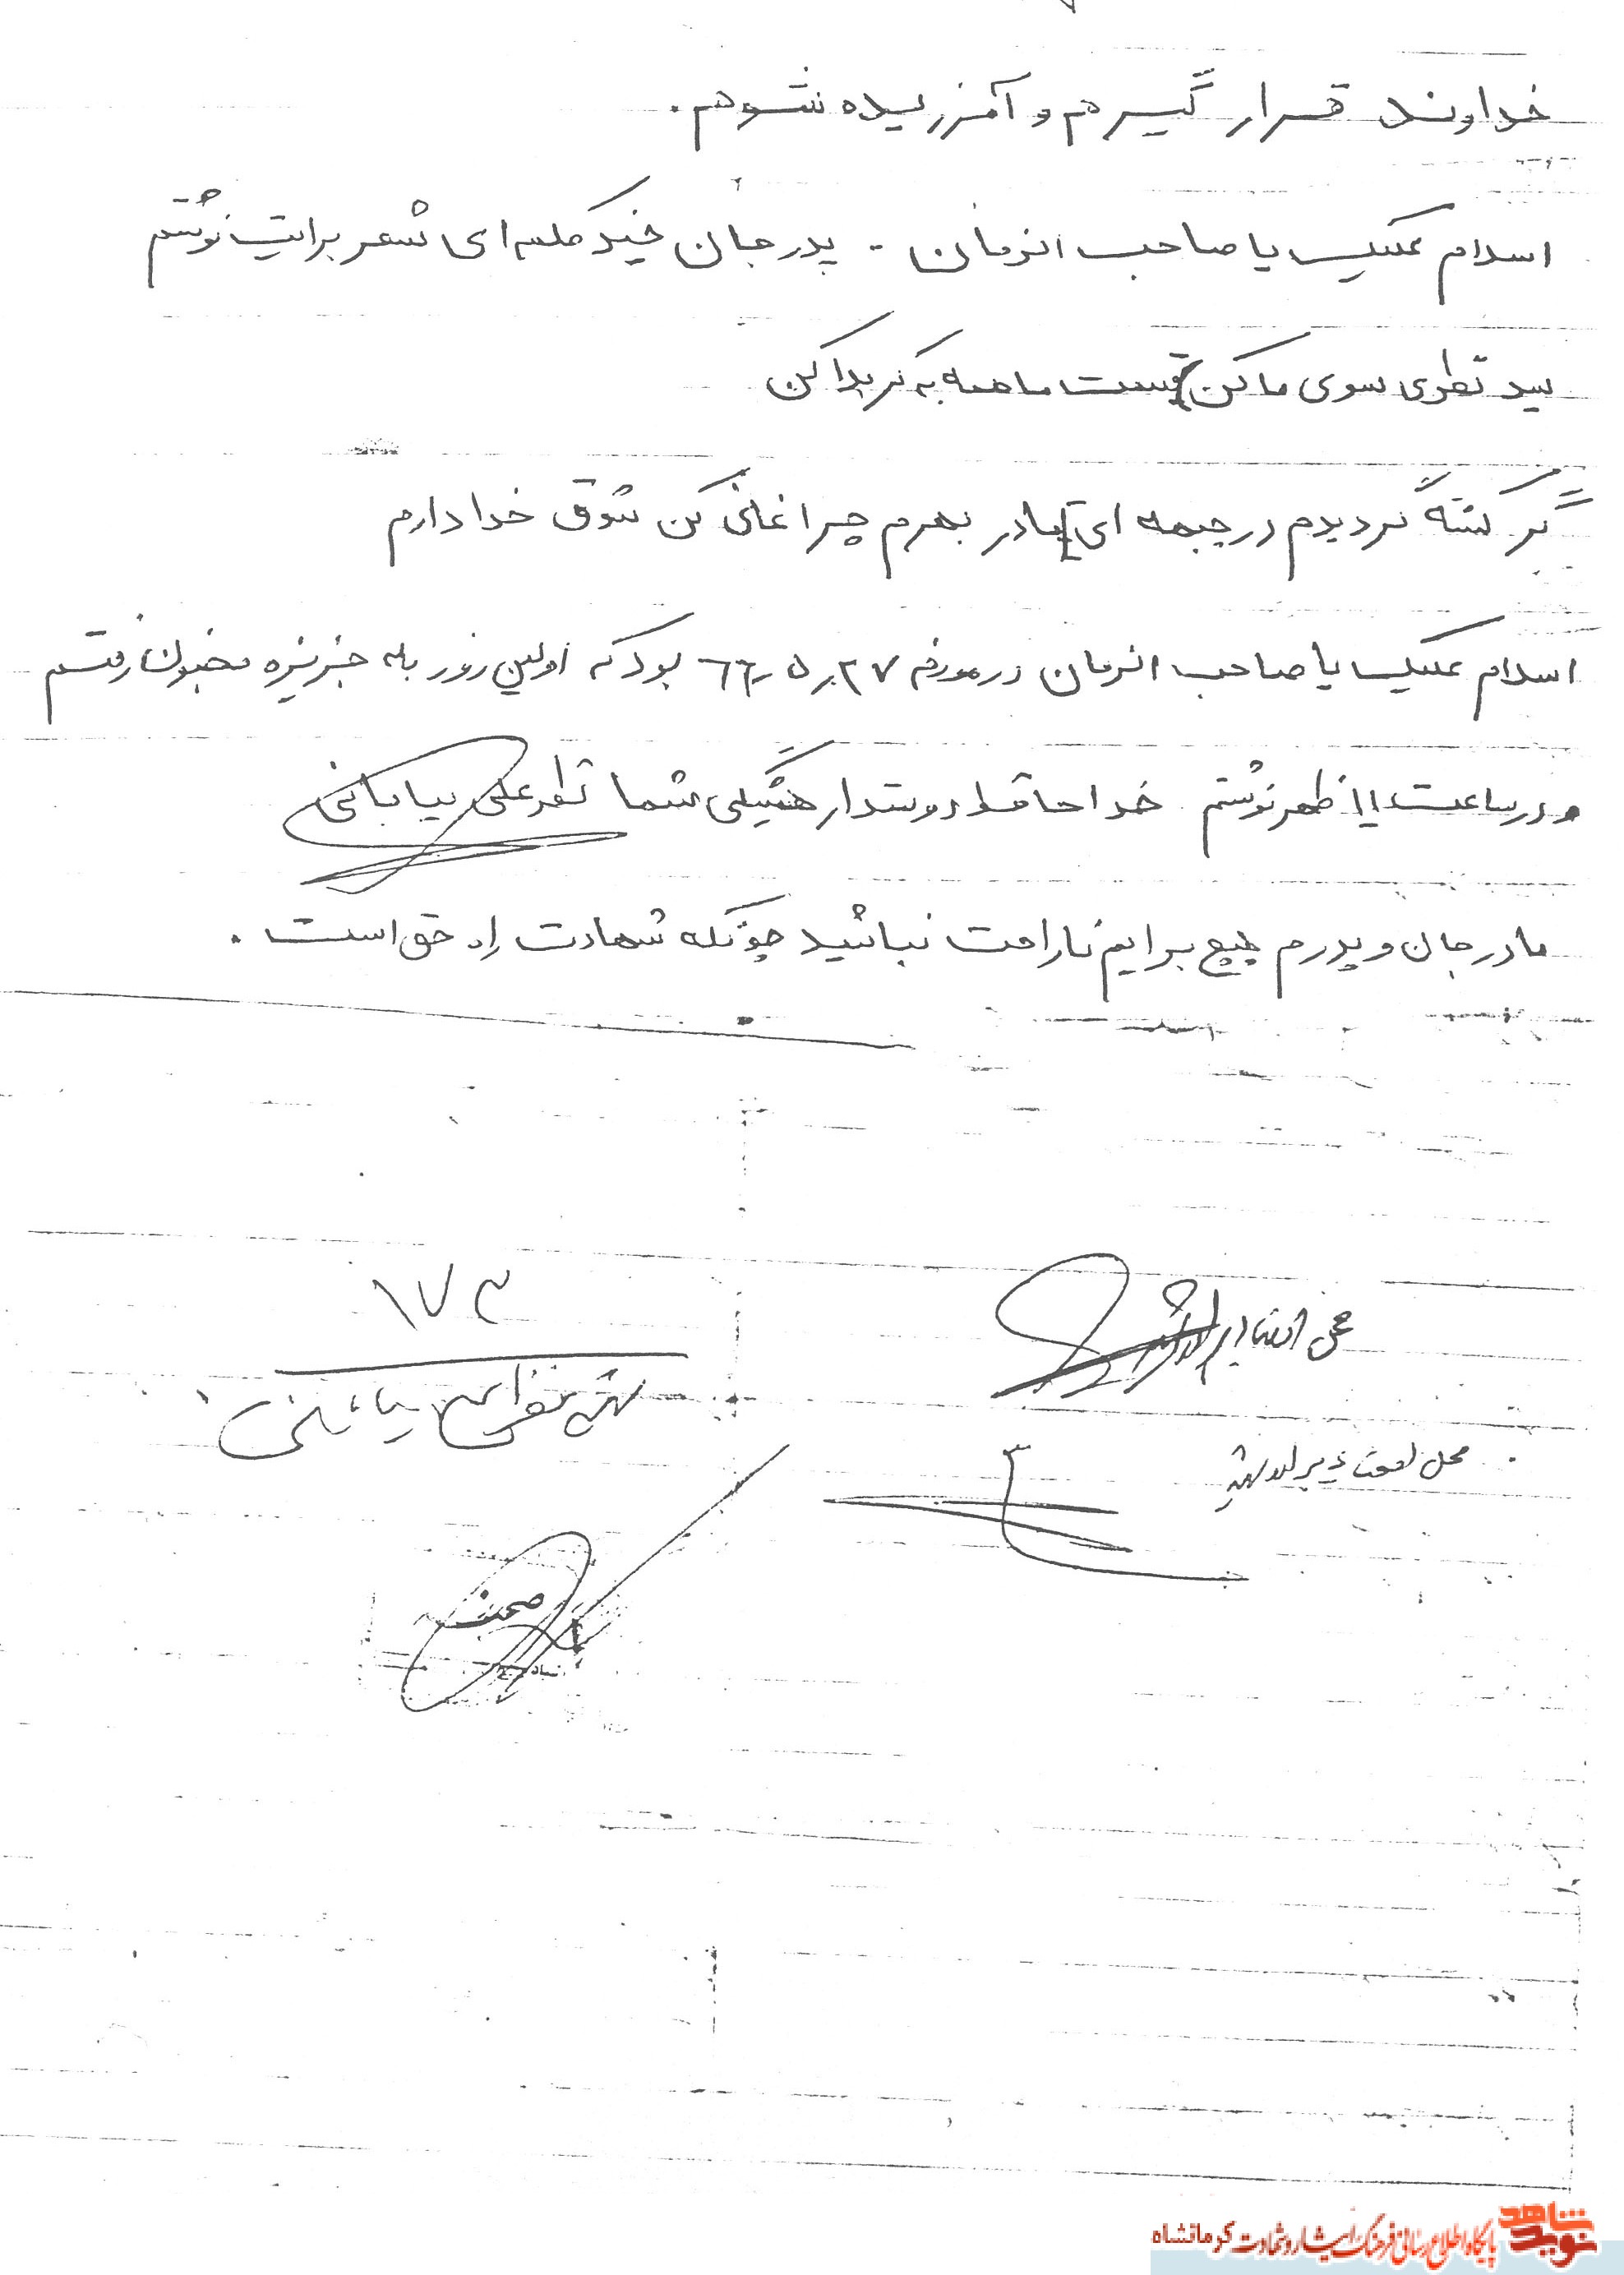 خداوند قرار گیرم و آمرزیده شوم.
اسلام علیک یا صاحب الزمان - پدر جان چند کلمه ای شعر برایت نوشتم
سید نظری سوی ما کن قسمت ما همه به کربلا کن
گر کشته گردیدم در جبهه ای مادر بهرم چراغانی کن شوق خدا دارم
اسلام علیک یا صاحب الزمان در مورخه ۲۷ر۵ر۶۶ بود که اولین روز به جزیزه مجنون رفتم
و در ساعت ۱۱ ظهر نوشتم. خداحافظ دوستدار همیشگی شما نظر علی بیابانی
مادر جان و پدرم هیچ برایم ناراحت نباشید چونکه شهادت راه حق است.
۱۷۳
محل انشاء
محل
نوید شاهد پایگاه اطلاع رسانی فرهنگ ایثار و شهادت کرمانشاه